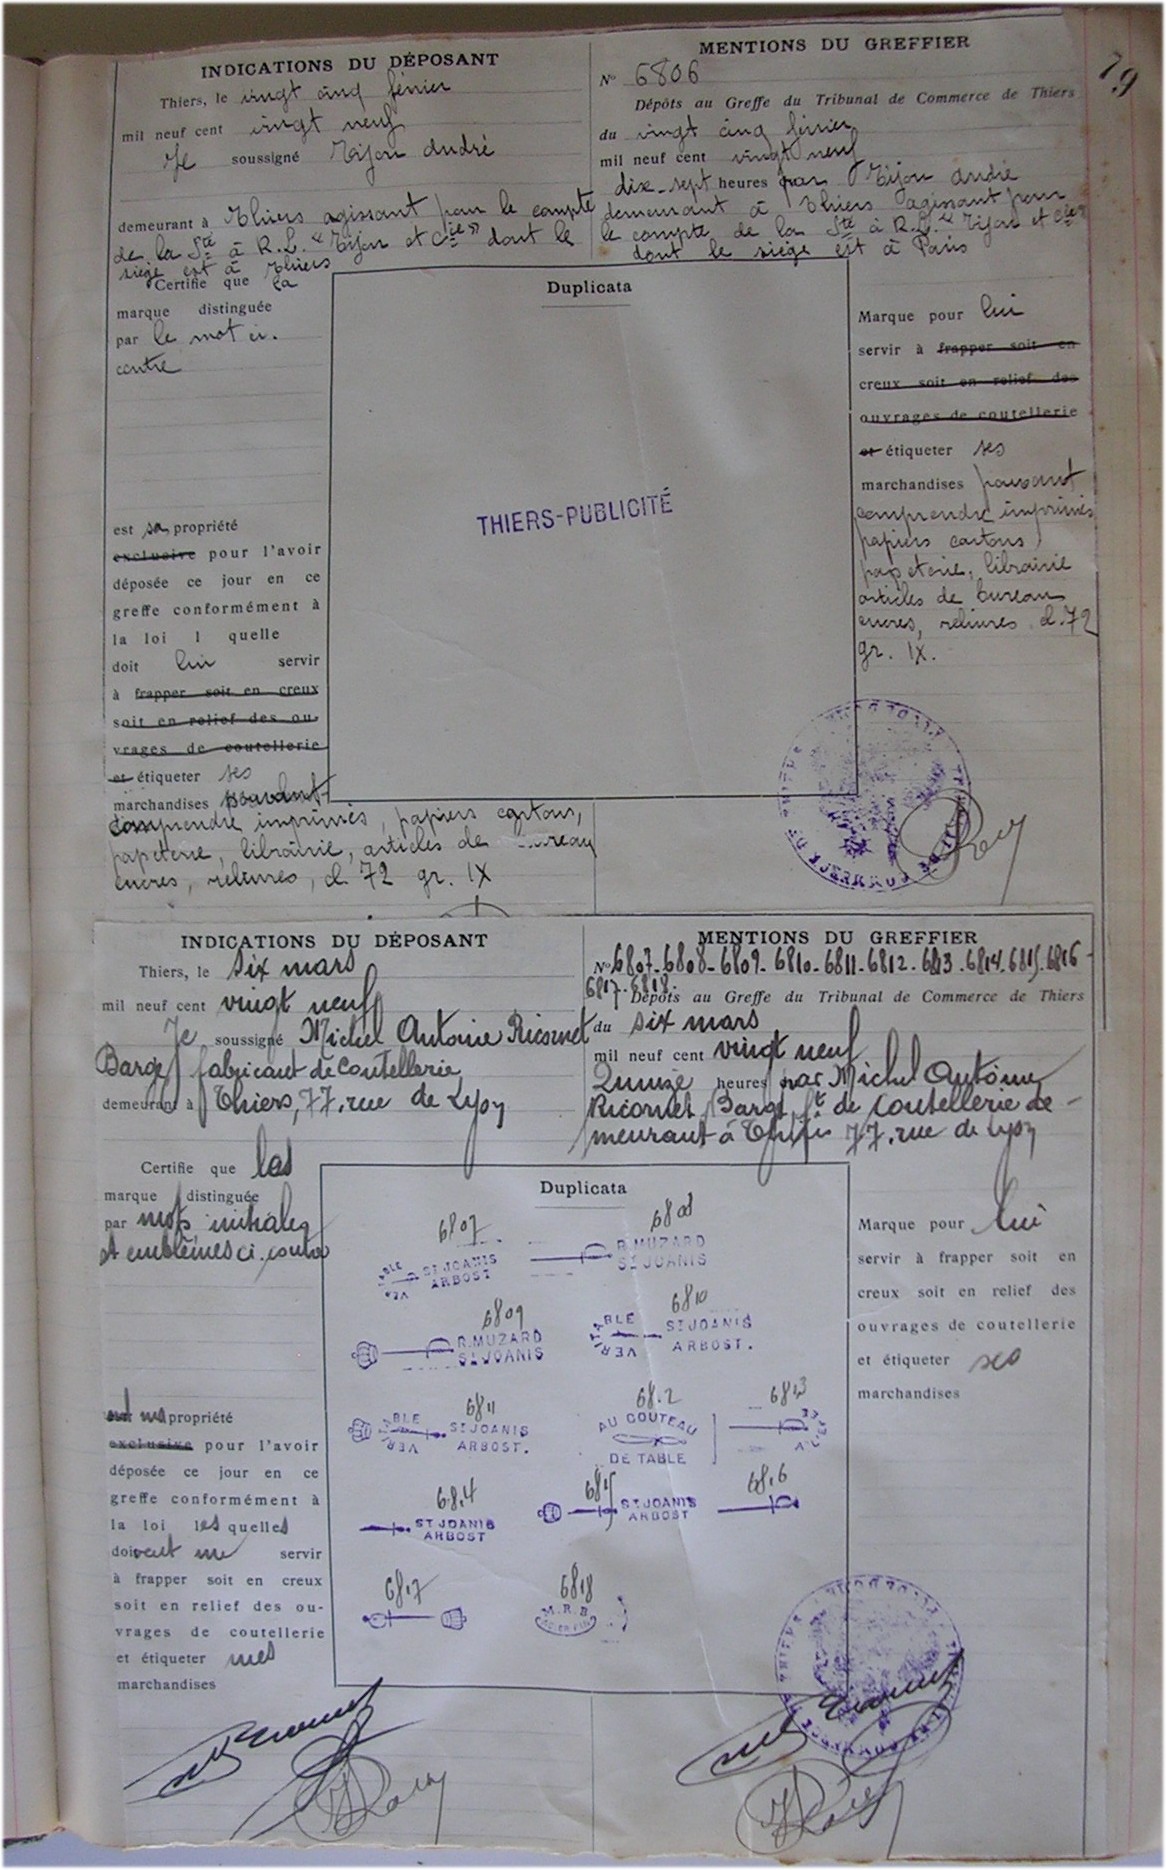 79
INDICATIONS DU DÉPOSANT
Thiers, le vingt cinq février
mil neuf cent vingt neuf
Je soussigné Tijon André
demeurant à Thiers agissant pour le compte
de la Sté à R.L. "Tijon et Cie" dont le
siège est à Thiers
Certifie que la
marque distinguée
par le mot ci.
contre
est sa propriété
exclusive pour l'avoir
déposée ce jour en ce
greffe conformément à
la loi l quelle
doit lui servir
à frapper soit en creux
soit en relief des ou-
vrages de coutellerie
et étiqueter ses
marchandises pouvant
comprendre imprimés, papiers cartons,
papeterie, librairie, articles de bureau
encres, reliures, cl 72 gr. IX
MENTIONS DU GREFFIER
N° 6806
Dépôts au Greffe du Tribunal de Commerce de Thiers
du vingt cinq février
mil neuf cent vingt neuf
dix-sept heures par Tijon André
demeurant à Thiers agissant pour
le compte de la Sté à R.L. "Tijon et Cie"
dont le siège est à Paris
Duplicata
THIERS-PUBLICITÉ
Marque pour lui
servir à frapper soit en
creux soit en relief des
ouvrages de coutellerie
et étiqueter ses
marchandises pouvant
comprendre imprimés
papiers cartons
papeterie, librairie
articles de bureau
encres, reliures cl. 72
gr. IX.
INDICATIONS DU DÉPOSANT
Thiers, le six mars
mil neuf cent vingt neuf
Je soussigné Michel Antoine Ricornet
Barge fabricant de coutellerie
demeurant à Thiers, 77, rue de Lyon
Certifie que les
marque distinguée
par mots initiales
et emblèmes ci-contre
sont ma propriété
exclusive pour l'avoir
déposée ce jour en ce
greffe conformément à
la loi lesquelles
doivent me servir
à frapper soit en creux
soit en relief des ou-
vrages de coutellerie
et étiqueter mes
marchandises
MENTIONS DU GREFFIER
N° 6807-6808-6809-6810-6811-6812-6813-6814-6815-6816-
6817-6818-
Dépôts au Greffe du Tribunal de Commerce de Thiers
du six mars
mil neuf cent vingt neuf
Quinze heures par Michel Antoine
Ricornet Barge ft de coutellerie de-
meurant à Thiers 77, rue de Lyon
Duplicata
6807
VERITABLE
ST JOANIS
ARBOST
6808
R.MUZARD
ST JOANIS
6809
R.MUZARD
ST JOANIS
6810
VERITABLE
ST JOANIS
ARBOST.
6811
VERITABLE
ST JOANIS
ARBOST.
6812
AU COUTEAU
DE TABLE
6813
6814
ST JOANIS
ARBOST
6815
ST JOANIS
ARBOST
6816
6817
6818
M.R.B
Marque pour lui
servir à frapper soit en
creux soit en relief des
ouvrages de coutellerie
et étiqueter ses
marchandises